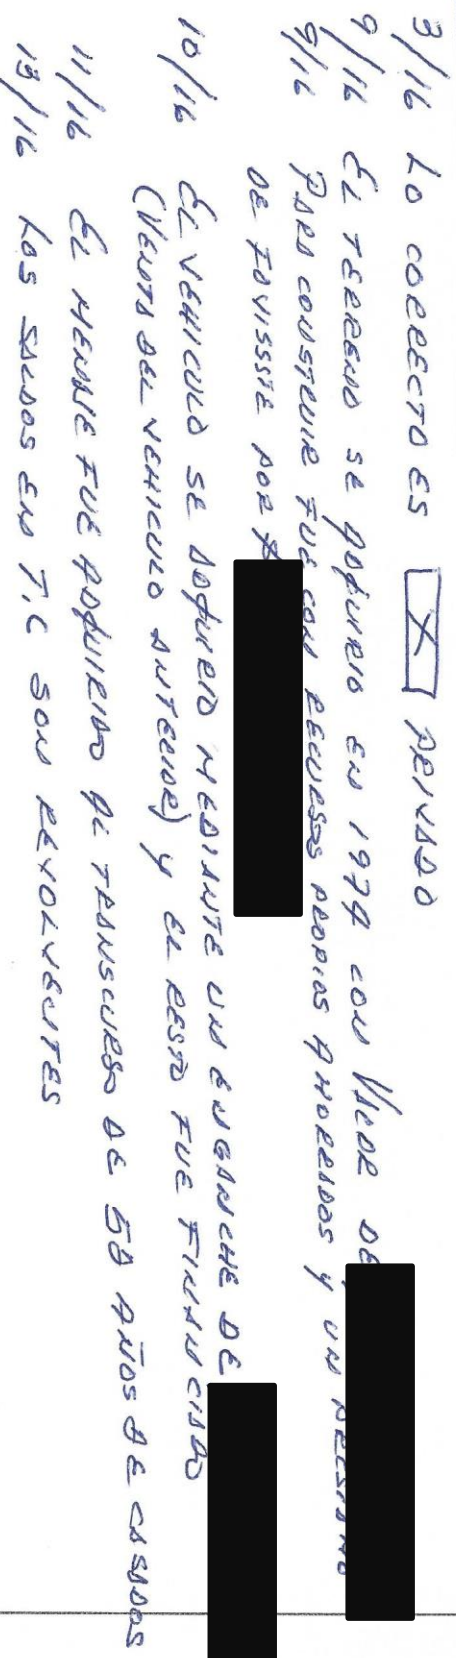 3/16 LO CORRECTO ES X PRIVADO
9/16 EL TERRENO SE ADQUIRIO EN 1974 CON VALOR DE
9/16 PARA CONSTRUIR FUE CON RECURSOS PROPIOS AHORRADOS Y UN PRESTAMO
DE FOVISSSTE POR $
10/16 EL VEHICULO SE ADQUIRIO MEDIANTE UN ENGANCHE DE
(VENTA DEL VEHICULO ANTERIOR) Y EL RESTO FUE FINANCIADO
11/16 EL MENAJE FUE ADQUIRIDO AL TRANSCURSO DE 50 AÑOS DE CASADOS
13/16 LOS SALDOS EN T.C SON REVOLVENTES